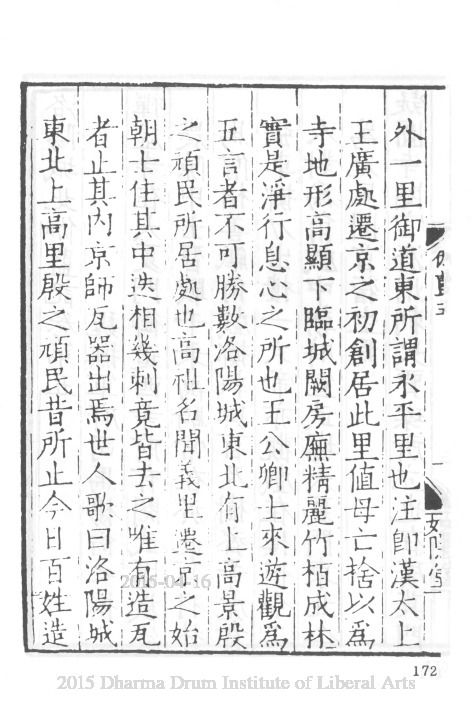 外一里御道東所謂永平里也注卽漢太上
王廣處遷京之初創居此里值母亡捨以爲
寺地形高顯下臨城闕房廡精麗竹栢成林
實是淨行息心之所也王公卿士來遊觀爲
五言者不可勝數洛陽城東北有上高景殷
之頑民所居處也高祖名聞義里遷京之始
朝士住其中迭相幾刺竟皆去之唯有造瓦
者止其內京師瓦器出焉世人歌曰洛陽城
東北上高里殷之頑民昔所止今日百姓造
172
2015-04-16
2015 Dharma Drum Institute of Liberal Arts